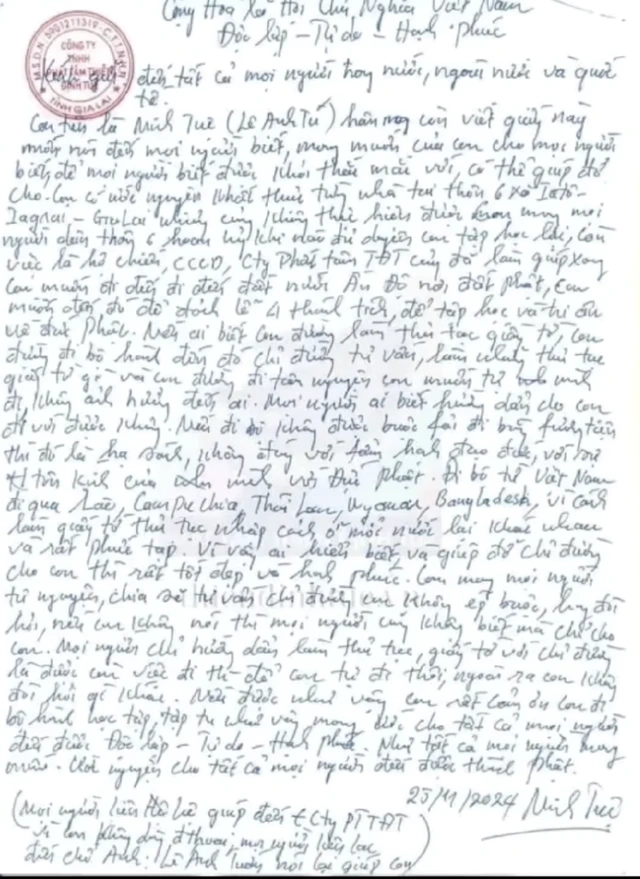 Cộng Hoà Xã Hội Chủ Nghĩa Việt Nam
Độc lập - Tự do - Hạnh Phúc
M.S.D.N: 5901211319 - C.T.T.N.H.H
CÔNG TY
TNHH
TỈNH GIA LAI
Kính gửi đến tất cả mọi người trong nước, ngoài nước và quốc
tế.
Con tên là Minh Tuệ (Lê Anh Tú) hôm nay con viết giấy này
muốn nói đến mọi người biết, mong muốn của con cho mọi người
biết để mọi người biết được khỏi thắc mắc với, có thể giúp đỡ
cho. Con có ước nguyện khất thực từng nhà tại thôn 6 xã IaTô -
Iagrai - GiaLai nhưng cũng không thực hiện được. mong mọi
người dân thôn 6 hoan hỷ khi nào đủ duyên con tập học lại, còn
việc là hộ chiếu, CCCD, Cty Phát tâm TĐT cũng đã làm giúp xong
Con muốn đi đến đất nước Ấn Độ nơi đất Phật, con
muốn đến đó để đảnh lễ 4 thánh tích, để tập học và tri ân
về đức Phật. Nên ai biết con đường làm thủ tục giấy tờ con
đường đi bộ hành đến đó chỉ đường tư vấn, làm những thủ tục
giấy tờ gì và con đường đi tâm nguyện con muốn tự mình
đi, không ảnh hưởng đến ai. Mọi người ai biết hướng dẫn cho con
đi với được không. Nếu đi bộ không được buộc phải đi bằng phương tiện
thì đó là hạ sách, không đúng với tâm hạnh đạo đức, với sự
tôn kính của mình với Đức Phật. Đi bộ từ Việt Nam
đi qua Lào, Campuchia, Thái Lan, Myanmar, Bangladesh, vì cách
làm giấy tờ thủ tục nhập cảnh ở mỗi nước lại khác nhau
và rất phức tạp. Vì vậy ai hiểu biết và giúp đỡ chỉ đường
cho con thì rất tốt đẹp và hạnh phúc. Con mong mọi người
tự nguyện, chia sẻ tư vấn chỉ đường con không ép buộc, hay đòi
hỏi, nếu con không nói thì mọi người cũng không biết mà chỉ cho
con. Mọi người chỉ hướng dẫn làm thủ tục, giấy tờ với chỉ đường
là được còn việc đi thì để con tự đi thôi, ngoài ra con không
đòi hỏi gì khác. Nếu được như vậy con rất cảm ơn con đi
bộ hành học tập, tập tu như vậy mong ước cho tất cả mọi người
đều được Độc lập - Tự do - Hạnh phúc. Như tất cả mọi người mong
muốn. Ước nguyện cho tất cả mọi người đều được thành Phật.
25/11/2024 Minh Tuệ
(Mọi người liên hệ hỗ trợ giúp đến Cty PTTĐT
vì con không dùng đthoại, mọi người liên lạc
đến chỗ Anh: Lê Anh nói lại giúp con)